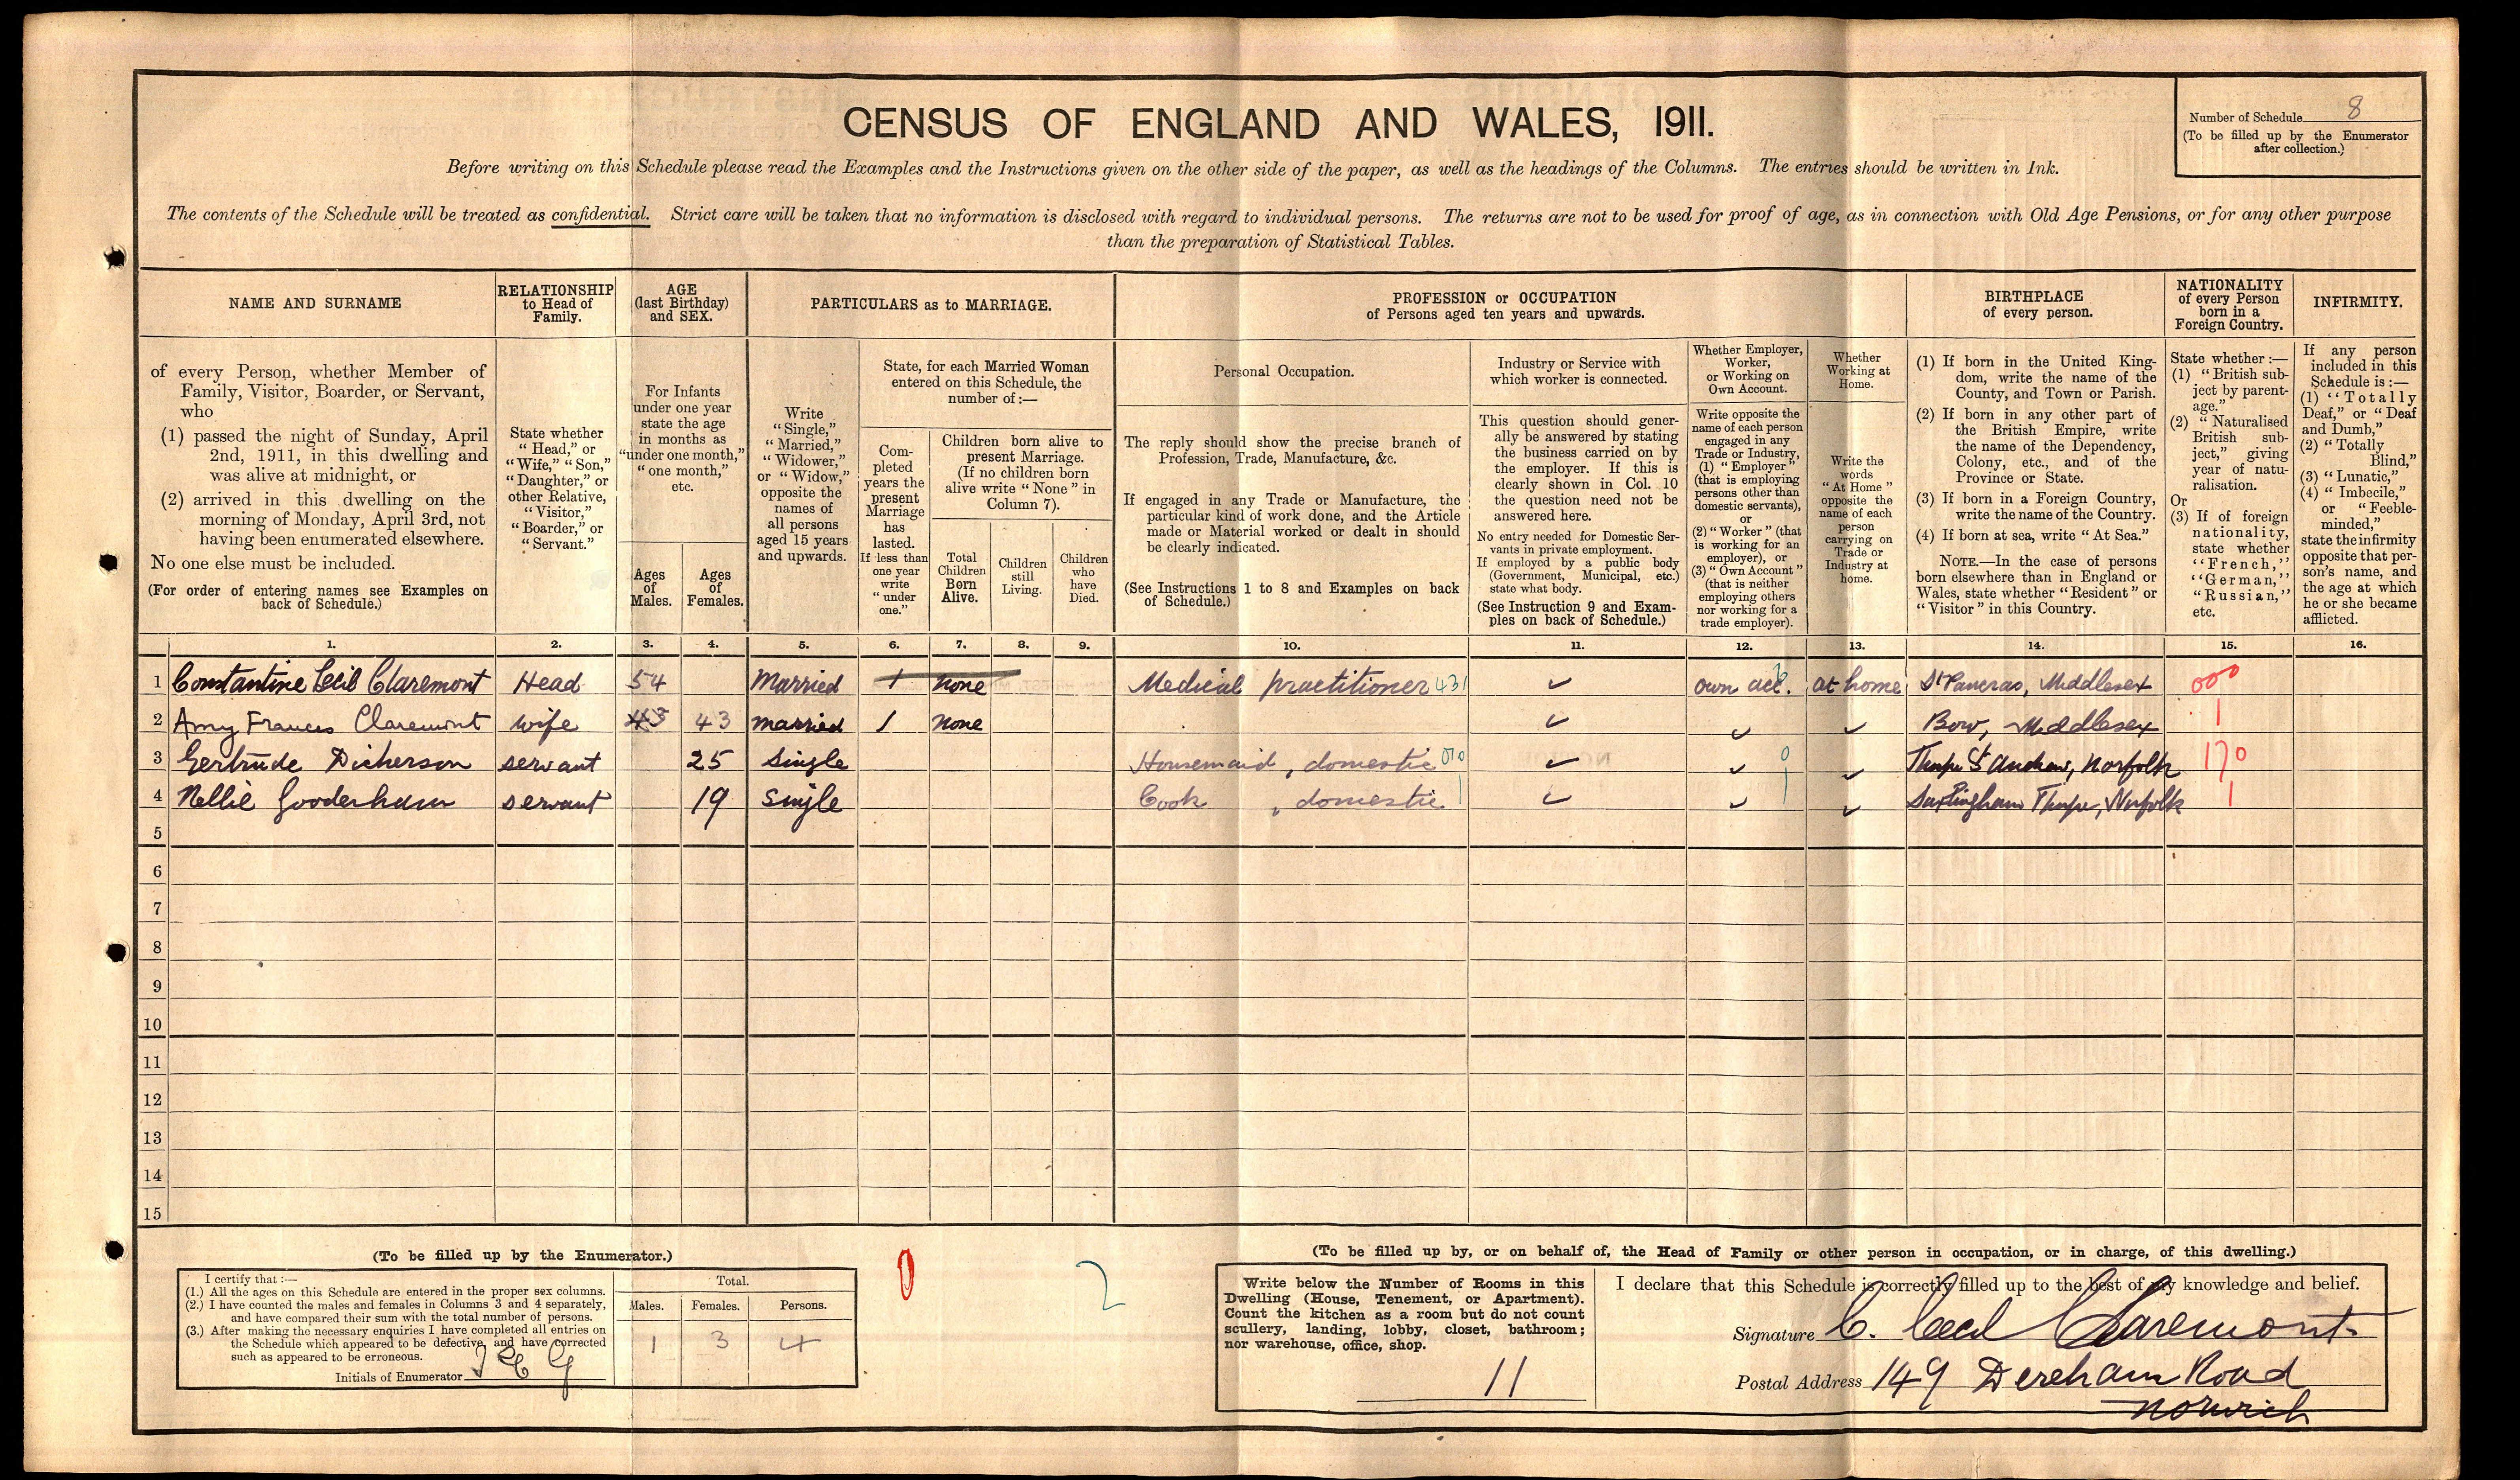 CENSUS OF ENGLAND AND WALES, 1911.
Number of Schedule 8
(To be filled up by the Enumerator
after collection.)
Before writing on this Schedule please read the Examples and the Instructions given on the other side of the paper, as well as the headings of the Columns. The entries should be written in Ink.
The contents of the Schedule will be treated as confidential. Strict care will be taken that no information is disclosed with regard to individual persons. The returns are not to be used for proof of age, as in connection with Old Age Pensions, or for any other purpose
than the preparation of Statistical Tables.
NAME AND SURNAME
of every Person, whether Member of
Family, Visitor, Boarder, or Servant,
who
(1) passed the night of Sunday, April
2nd, 1911, in this dwelling and
was alive at midnight, or
(2) arrived in this dwelling on the
morning of Monday, April 3rd, not
having been enumerated elsewhere.
No one else must be included.
(For order of entering names see Examples on
back of Schedule.)
RELATIONSHIP
to Head of
Family.
State whether
"Head," or
"Wife," "Son,"
"Daughter," or
other Relative,
"Visitor,"
"Boarder," or
"Servant."
AGE
(last Birthday)
and SEX.
For Infants
under one year
state the age
in months as
"under one month,"
"one month,"
etc.
Ages
of
Males.
Ages
of
Females.
PARTICULARS as to MARRIAGE.
Write
"Single,"
"Married,"
"Widower,"
or "Widow,"
opposite the
names of
all persons
aged 15 years
and upwards.
State, for each Married Woman
entered on this Schedule, the
number of:—
Com-
pleted
years the
present
Marriage
has
lasted.
If less than
one year
write
"under
one."
Children born alive to
present Marriage.
(If no children born
alive write "None" in
Column 7).
Total
Children
Born
Alive.
Children
still
Living.
Children
who
have
Died.
PROFESSION or OCCUPATION
of Persons aged ten years and upwards.
Personal Occupation.
The reply should show the precise branch of
Profession, Trade, Manufacture, &c.
If engaged in any Trade or Manufacture, the
particular kind of work done, and the Article
made or Material worked or dealt in should
be clearly indicated.
(See Instructions 1 to 8 and Examples on back
of Schedule.)
Industry or Service with
which worker is connected.
This question should gener-
ally be answered by stating
the business carried on by
the employer. If this is
clearly shown in Col. 10
the question need not be
answered here.
No entry needed for Domestic Ser-
vants in private employment.
If employed by a public body
(Government, Municipal, etc.)
state what body.
(See Instruction 9 and Exam-
ples on back of Schedule.)
Whether Employer,
Worker,
or Working on
Own Account.
Write opposite the
name of each person
engaged in any
Trade or Industry,
(1) "Employer"
(that is employing
persons other than
domestic servants),
or
(2) "Worker" (that
is working for an
employer), or
(3) "Own Account"
(that is neither
employing others
nor working for a
trade employer).
Whether
Working at
Home.
Write the
words
"At Home"
opposite the
name of each
person
carrying on
Trade or
Industry at
home.
BIRTHPLACE
of every person.
(1) If born in the United King-
dom, write the name of the
County, and Town or Parish.
(2) If born in any other part of
the British Empire, write
the name of the Dependency,
Colony, etc., and of the
Province or State.
(3) If born in a Foreign Country,
write the name of the Country.
(4) If born at sea, write "At Sea."
NOTE.—In the case of persons
born elsewhere than in England or
Wales, state whether "Resident" or
"Visitor" in this Country.
NATIONALITY
of every Person
born in a
Foreign Country.
State whether:—
(1) "British sub-
ject by parent-
age."
(2) "Naturalised
British sub-
ject," giving
year of natu-
ralisation.
Or
(3) If of foreign
nationality,
state whether
"French,"
"German,"
"Russian,"
etc.
INFIRMITY.
If any person
included in this
Schedule is:—
(1) "Totally
Deaf," or "Deaf
and Dumb,"
(2) "Totally
Blind,"
(3) "Lunatic,"
(4) "Imbecile,"
or "Feeble-
minded,"
state the infirmity
opposite that per-
son's name, and
the age at which
he or she became
afflicted.
1. 2. 3. 4. 5. 6. 7. 8. 9. 10. 11. 12. 13. 14. 15. 16.
1 Constantine Cecil Claremont Head 54 Married 1 none Medical practitioner 431 own acc. at home St Pancras, Middlesex 000
2 Amy Frances Claremont wife 43 43 married 1 None Bow, Middlesex 1
3 Gertrude Dickerson servant 25 Single Housemaid, domestic 010 0 Thorpe St Andrew, Norfolk 170
4 Nellie Gooderham servant 19 Single Cook, domestic 1 1 Saxlingham Thorpe, Norfolk 1
5
6
7
8
9
10
11
12
13
14
15
(To be filled up by the Enumerator.)
I certify that:—
(1.) All the ages on this Schedule are entered in the proper sex columns.
(2.) I have counted the males and females in Columns 3 and 4 separately,
and have compared their sum with the total number of persons.
(3.) After making the necessary enquiries I have completed all entries on
the Schedule which appeared to be defective, and have corrected
such as appeared to be erroneous.
Initials of Enumerator
Total.
Males. Females. Persons.
1 3 4
0
2
(To be filled up by, or on behalf of, the Head of Family or other person in occupation, or in charge, of this dwelling.)
Write below the Number of Rooms in this
Dwelling (House, Tenement, or Apartment).
Count the kitchen as a room but do not count
scullery, landing, lobby, closet, bathroom;
nor warehouse, office, shop.
11
I declare that this Schedule is correctly filled up to the best of my knowledge and belief.
Signature C. Cecil Claremont
Postal Address 149 Dereham Road
Norwich